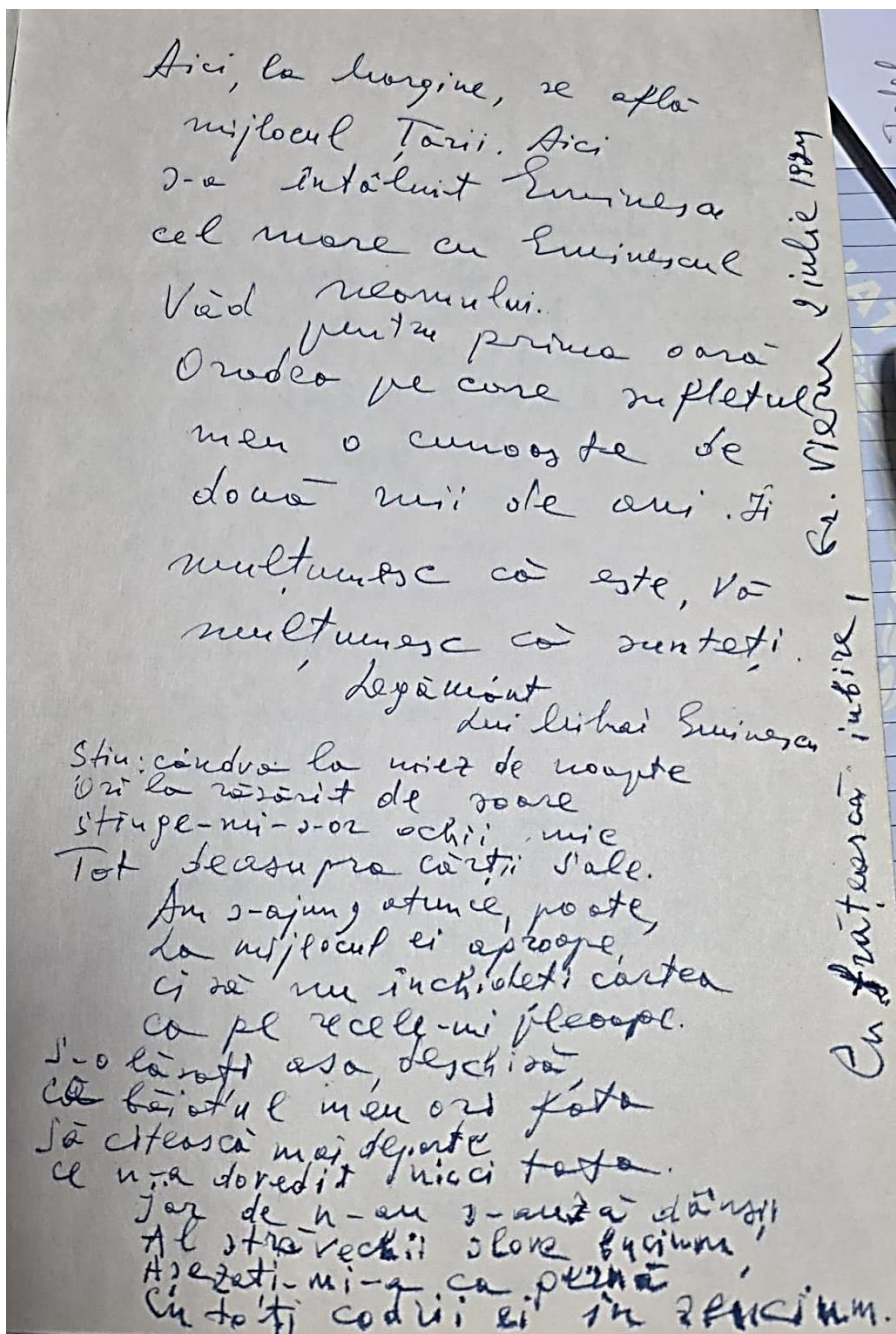 Aici, la margine, se află
mijlocul Țării. Aici
s-a întâlnit Eminescu
cel mare cu Eminescul
neamului.
Văd pentru prima oară
Oradea pe care sufletul
meu o cunoaște de
două mii de ani. Îi
mulțumesc că este, Vă
mulțumesc că sunteți.
Legământ
Lui Mihai Eminescu
Știu: cândva la miez de noapte
Ori la răsărit de soare
Stinge-mi-s-or ochii mie
Tot deasupra cărții Sale.
Am s-ajung atunce, poate,
La mijlocul ei aproape,
Ci să nu închideți cartea
Ca pe recele-mi pleoape.
S-o lăsați așa, deschisă,
Ca băiatul meu ori fata
Să citească mai departe
Ce n-a dovedit nici tata.
Iar de n-au s-auză dânșii
Al străvechii slove bucium,
Așezați-mi-a ca pernă
Cu toți codrii ei în zbucium.
Cu frățească iubire,
Gr. Vieru 2 iulie